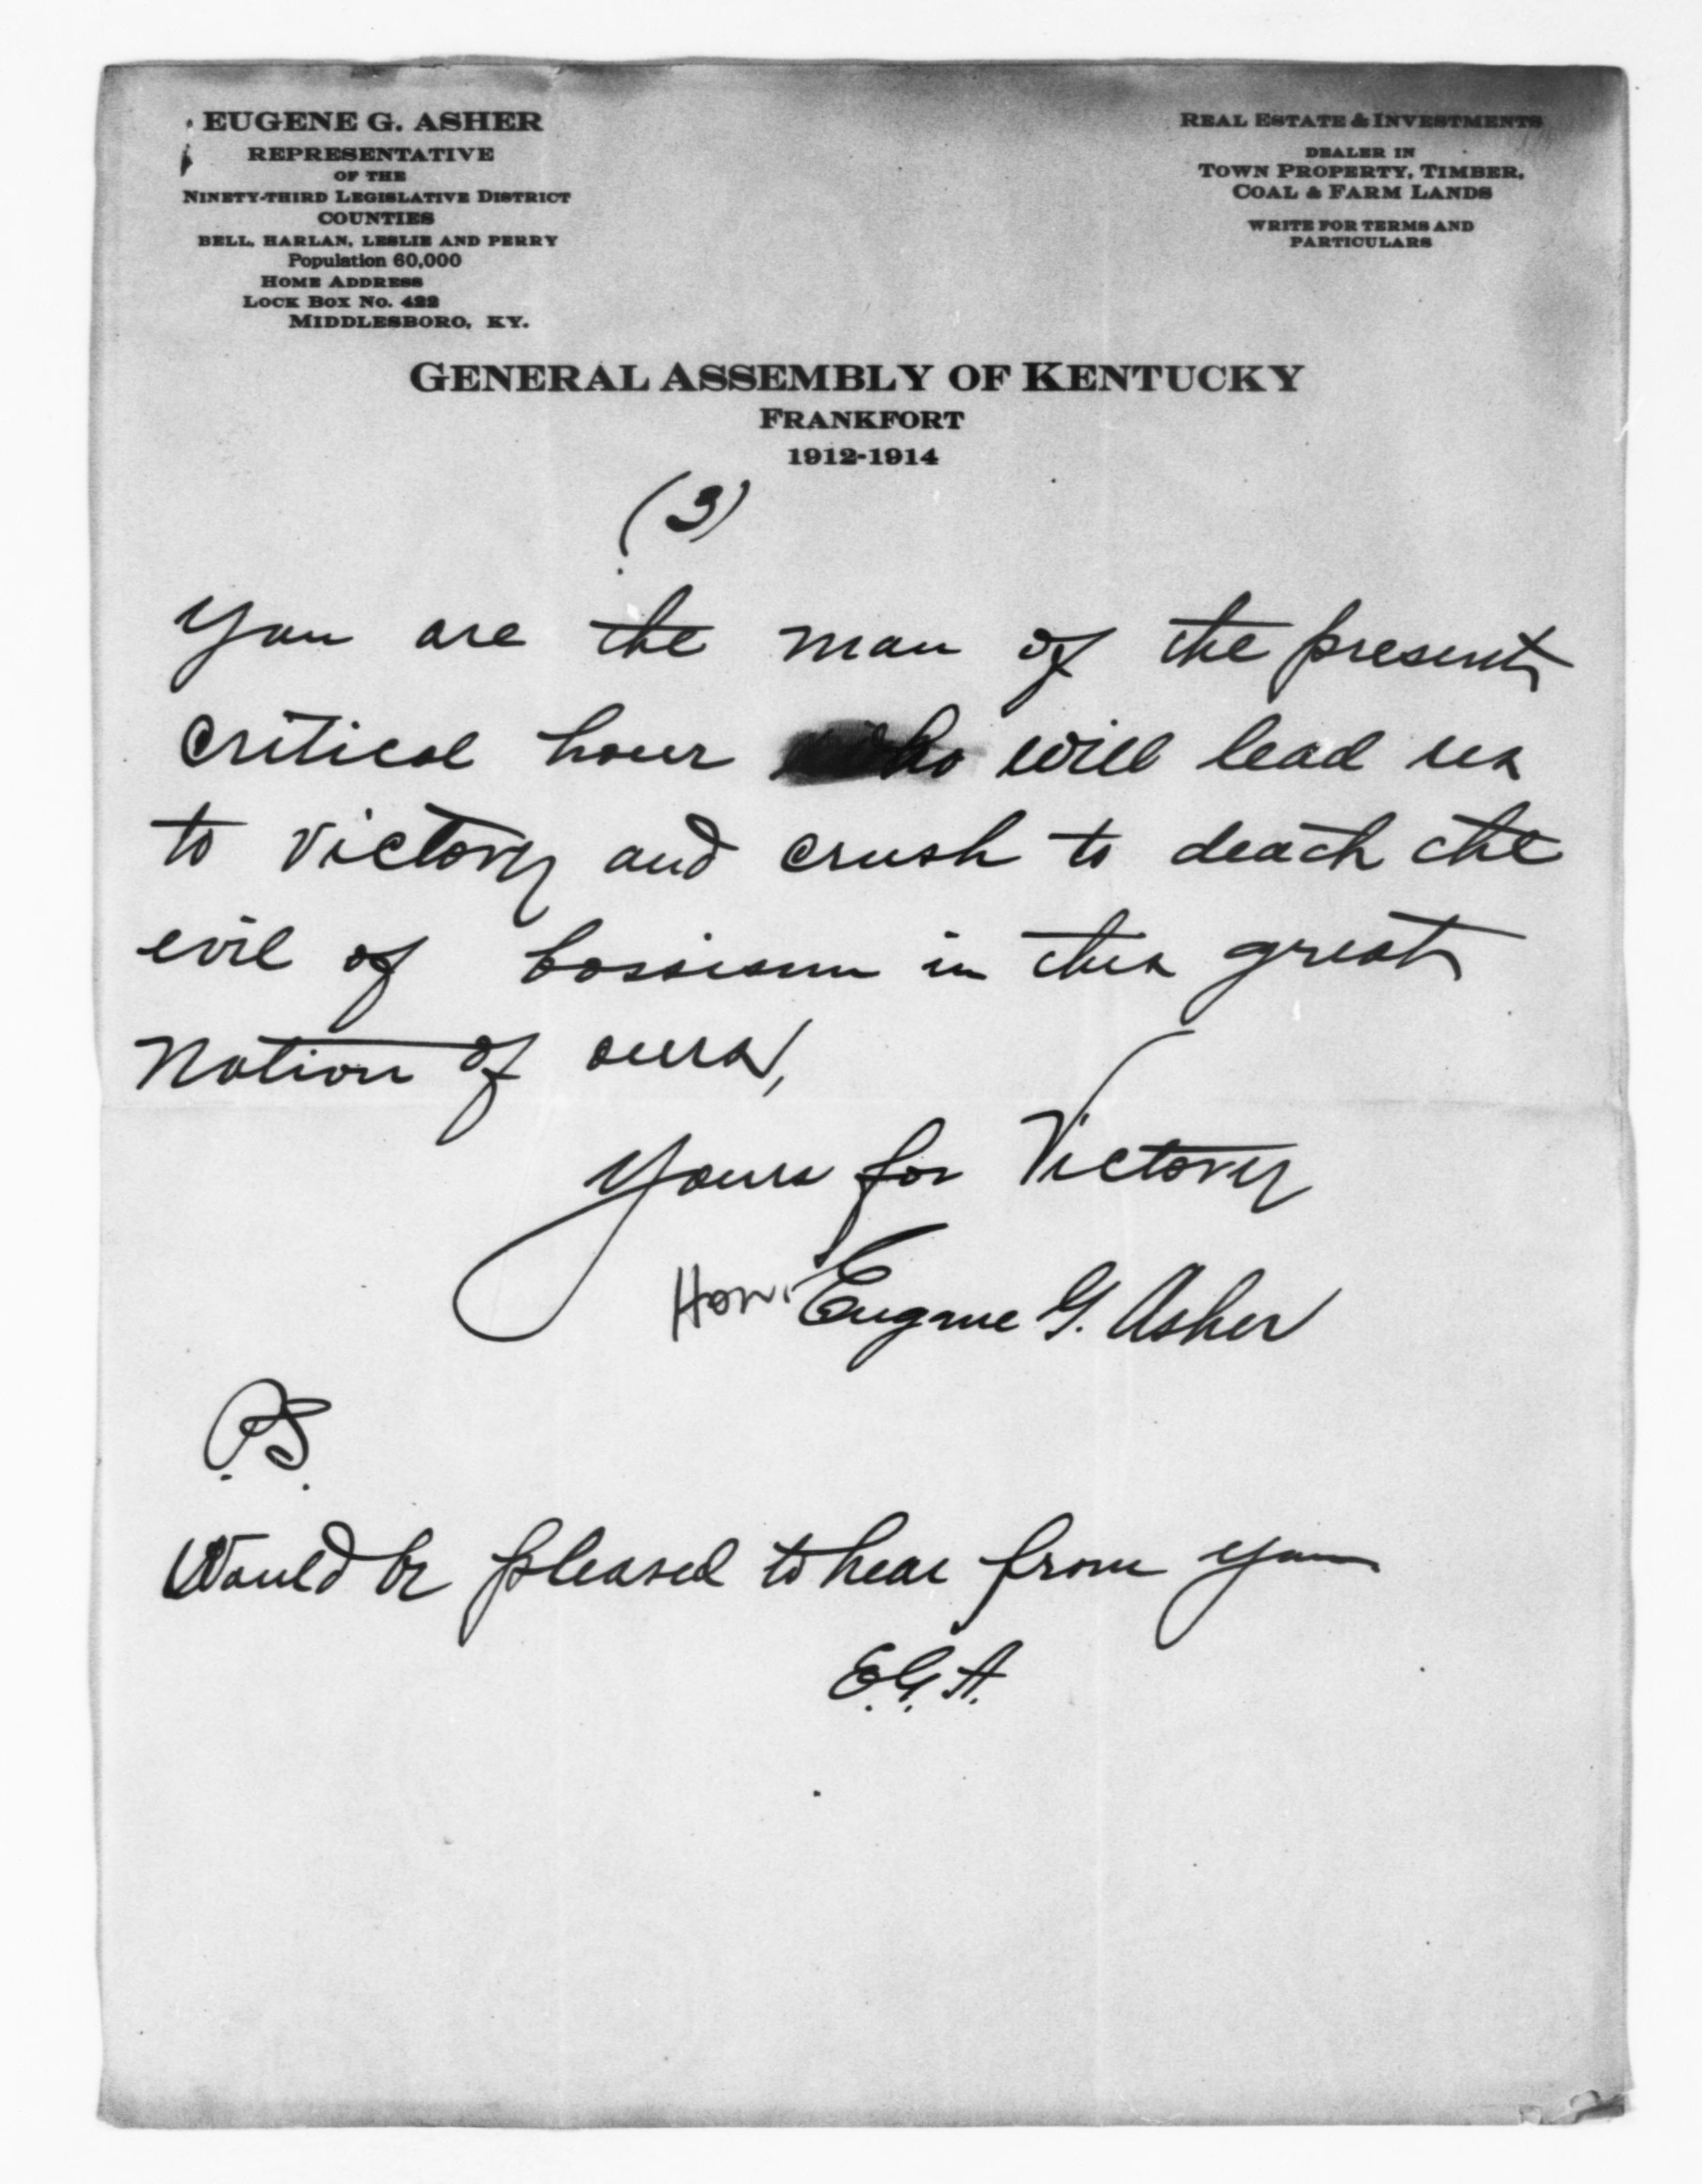 EUGENE G. ASHER
REPRESENTATIVE
OF THE
NINETY-THIRD LEGISLATIVE DISTRICT
COUNTIES
BELL, HARLAN, LESLIE AND PERRY
Population 60,000
HOME ADDRESS
LOCK BOX NO. 422
MIDDLESBORO, KY.
REAL ESTATE & INVESTMENTS
DEALER IN
TOWN PROPERTY, TIMBER,
COAL & FARM LANDS
WRITE FOR TERMS AND
PARTICULARS
GENERAL ASSEMBLY OF KENTUCKY
FRANKFORT
1912-1914
(3)
You are the man of the present
critical hour who will lead us
to victory and crush to death the
evil of bossism in this great
Nation of ours,
Yours for Victory
Hon. Eugene G. Asher
P.S.
Would be pleased to hear from you
E.G.A.